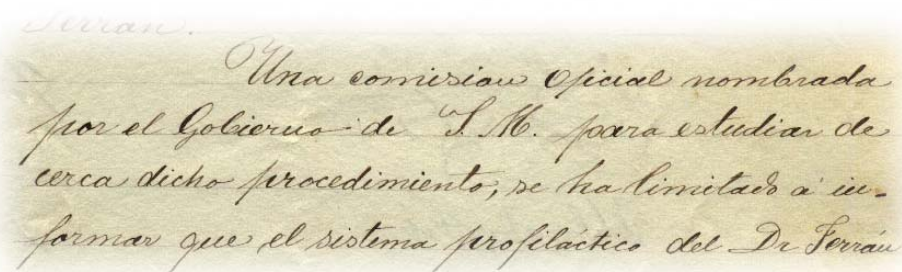 Ferrán.
Una comision Oficial nombrada
por el Gobierno de S. M. para estudiar de
cerca dicho procedimiento, se ha limitado á in-
formar que el sistema profiláctico del Dr Ferrán